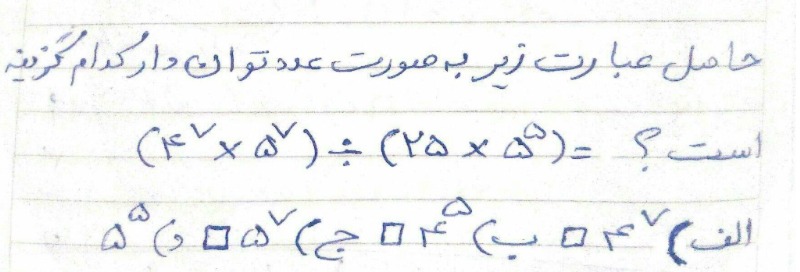 حاصل عبارت زیر به صورت عدد توان دار کدام گزینه
است؟ (۴^۷ × ۵^۷) ÷ (۲۵ × ۵^۵) =
الف) ۴^۷ □ ب) ۴^۵ □ ج) ۵^۷ □ د) ۵^۵